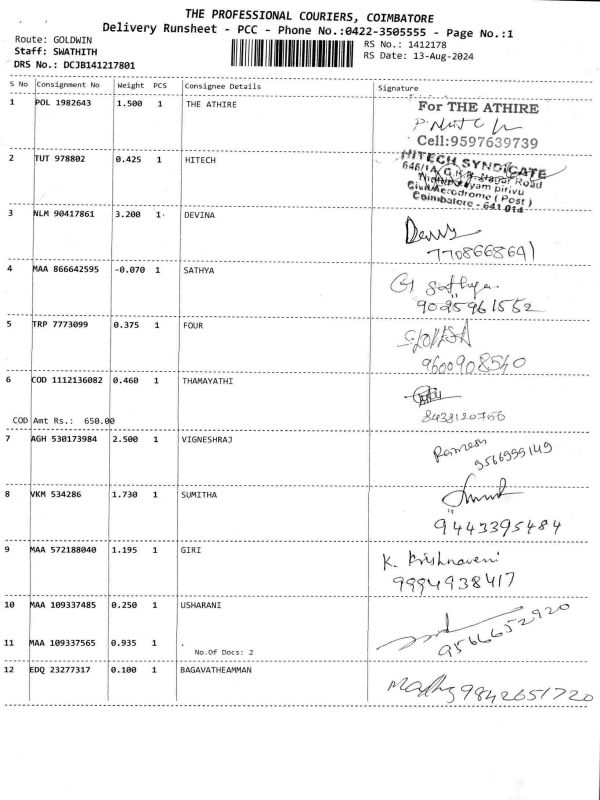 THE PROFESSIONAL COURIERS, COIMBATORE
Delivery Runsheet - PCC - Phone No.:0422-3505555 - Page No.:1
Route: GOLDWIN
Staff: SWATHITH
DRS No.: DCJB141217801
RS No.: 1412178
RS Date: 13-Aug-2024
S No Consignment No Weight PCS Consignee Details Signature
1 POL 1982643 1.500 1 THE ATHIRE
For THE ATHIRE
Cell:9597639739
2 TUT 978802 0.425 1 HITECH
HITECH SYNDICATE
Road
pirivu
Civil Aerodrome (Post)
Coimbatore - 641 014
3 NLM 90417861 3.200 1 DEVINA
7708668641
4 MAA 866642595 -0.070 1 SATHYA
G Sathya
9025961552
5 TRP 7773099 0.375 1 FOUR
9600908540
6 COD 1112136082 0.460 1 THAMAYATHI
8438120756
COD Amt Rs.: 650.00
7 AGH 530173984 2.500 1 VIGNESHRAJ
Ramesh
9566999149
8 VKM 534286 1.730 1 SUMITHA
9443395484
9 MAA 572188040 1.195 1 GIRI
K. Krishnaveni
9994938417
10 MAA 109337485 0.250 1 USHARANI
9566652920
11 MAA 109337565 0.935 1
No.Of Docs: 2
12 EDQ 23277317 0.100 1 BAGAVATHEAMMAN
Madhu 9842651720